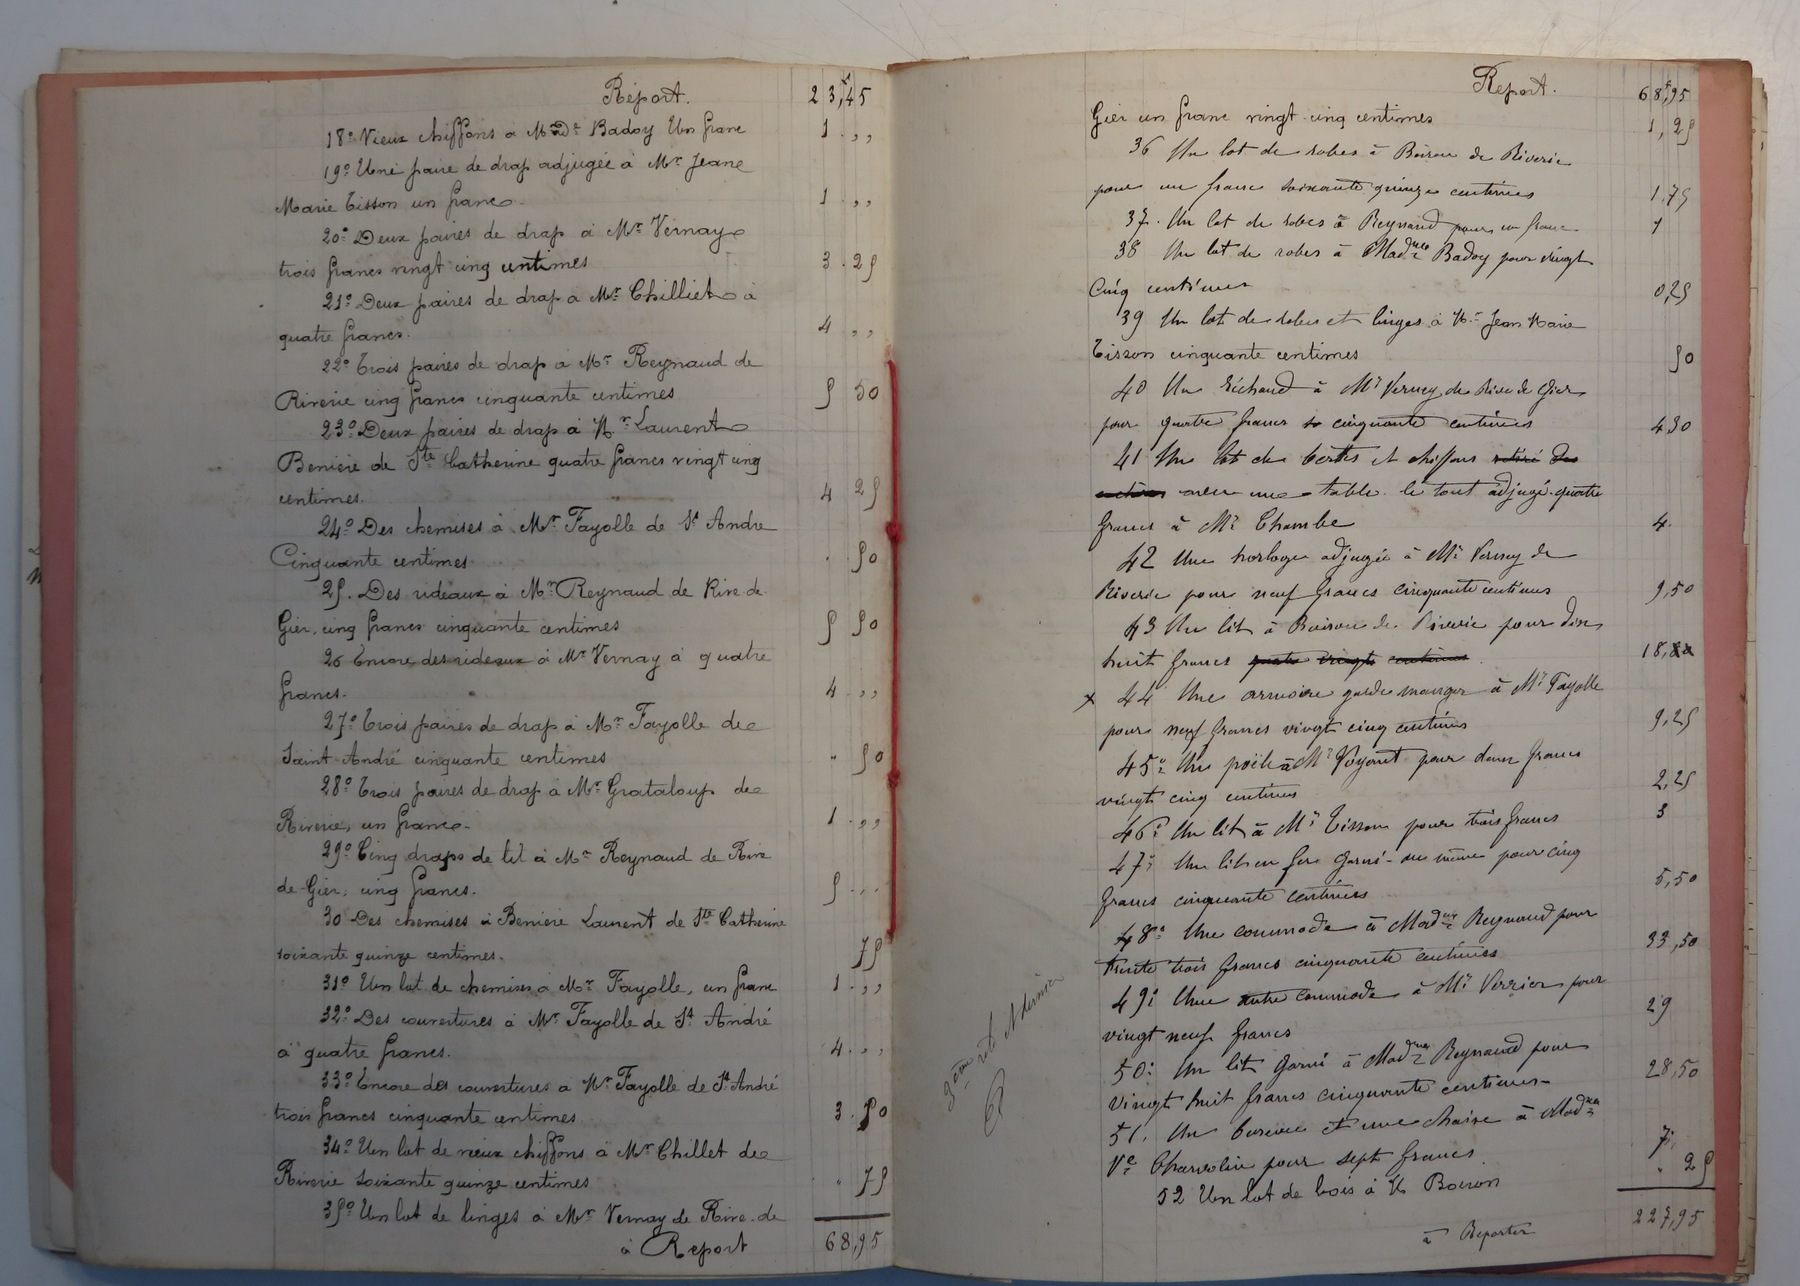 Report. 23,45
18° Vieux chiffons à Mde Badoy Un franc 1 . ,,
19° Une paire de drap adjugée à Mr Jeane
Marie Tisson un franc. 1 . ,,
20° Deux paires de drap à Mr Vernay
trois francs vingt cinq centimes 3 . 25
21° Deux paires de drap à Mr Chilliet à
quatre francs. 4 ,,
22° Trois paires de drap à Mr Reynaud de
Riverie cinq francs cinquante centimes 5 50
23° Deux paires de drap à Mr Laurent
Beniere de Ste Catherine quatre francs vingt cinq
centimes. 4 25
24° Des chemises à Mr Fayolle de St Andre
Cinquante centimes . 50
25. Des rideaux à Mr Reynaud de Rive de
Gier, cinq francs cinquante centimes 5 50
26 Encore des rideaux à Mr Vernay à quatre
francs. 4 . ,,
27° Trois paires de drap à Mr Fayolle de
Saint André cinquante centimes " 50
28° Trois paires de drap à Mr Grataloup de
Riverie, un franc. 1 . ,,
29° Cinq draps de lit à Mr Reynaud de Rive
de Gier, cinq francs. 5 . ..
30 Des chemises à Beniere Laurent de Ste Catherine
soixante quinze centimes. 75
31° Un lot de chemises à Mr Fayolle, un franc 1 . ,,
32° Des couvertures à Mr Fayolle de St André
à quatre francs. 4 . ,,
33° Encore des couvertures à Mr Fayolle de St André
trois francs cinquante centimes 3 . 50
34° Un lot de vieux chiffons à Mr Chillet de
Riverie soixante quinze centimes " 75
35° Un lot de linges à Mr Vernay de Rive de
à Report 68,95
Report. 68,95
Gier un franc vingt cinq centimes 1,25
36 Un lot de robes à Boiron de Riverie
pour un franc soixante quinze centimes 1,75
37. Un lot de robes à Reynaud pour un franc 1
38 Un lot de robes à Madme Badoy pour vingt
Cinq centimes 0,25
39 Un lot de robes et linges à Mr Jean Marie
Tisson cinquante centimes 50
40 Un réchaud à Mr Verney de Rive de Gier
pour quatre francs cinquante centimes 4 50
41 Un lot de bottes et chiffons
avec une table. le tout adjugé quatre
francs à Mr Chambe 4.
42 Une horloge adjugée à Mr Verney de
Riverie pour neuf francs cinquante centimes 9,50
43 Un lit à Boiron de Riverie pour dix
huit francs quatre vingts centimes 18,
x 44 Une armoire garde manger à Mr Fayolle
pour neuf francs vingt cinq centimes 9,25
45° Un poële à Mr Voyant pour deux francs
vingt cinq centimes 2,25
46° Un lit à Mr Tisson pour trois francs 3
47° Un lit en fer garni au même pour cinq
francs cinquante centimes 5,50
48° Une commode à Madme Reynaud pour
trente trois francs cinquante centimes 33,50
49° Une autre commode à Mr Verrier pour
vingt neuf francs 29
50° Un lit garni à Madme Reynaud pour
vingt huit francs cinquante centimes 28,50
51. Un bureau et une chaise à Madme
Ve pour sept francs 7.
52 Un lot de bois à M Boiron . 25
à Reporter 227,95
3ème rôle et dernier